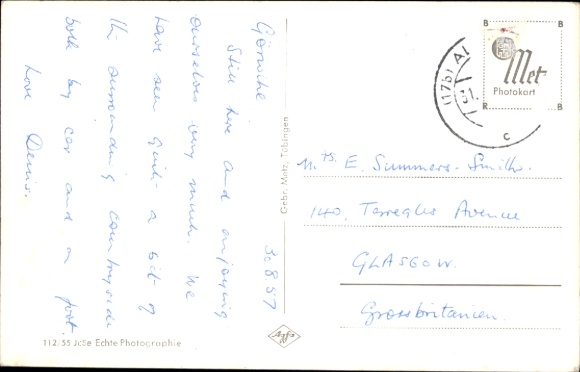 Görwihl 30.8.57
Still here and enjoying
ourselves very much. We
have seen quite a bit of
the surrounding countryside
both by car and on foot.
Love Denis.
112/55 JoSe Echte Photographie
Gebr. Metz, Tübingen
Agfa
B B
Met
Photokart
R B
(17b)
31.
c
Mrs. E. Summers-Smith.
140, Terregles Avenue
GLASGOW.
Grossbritannien.